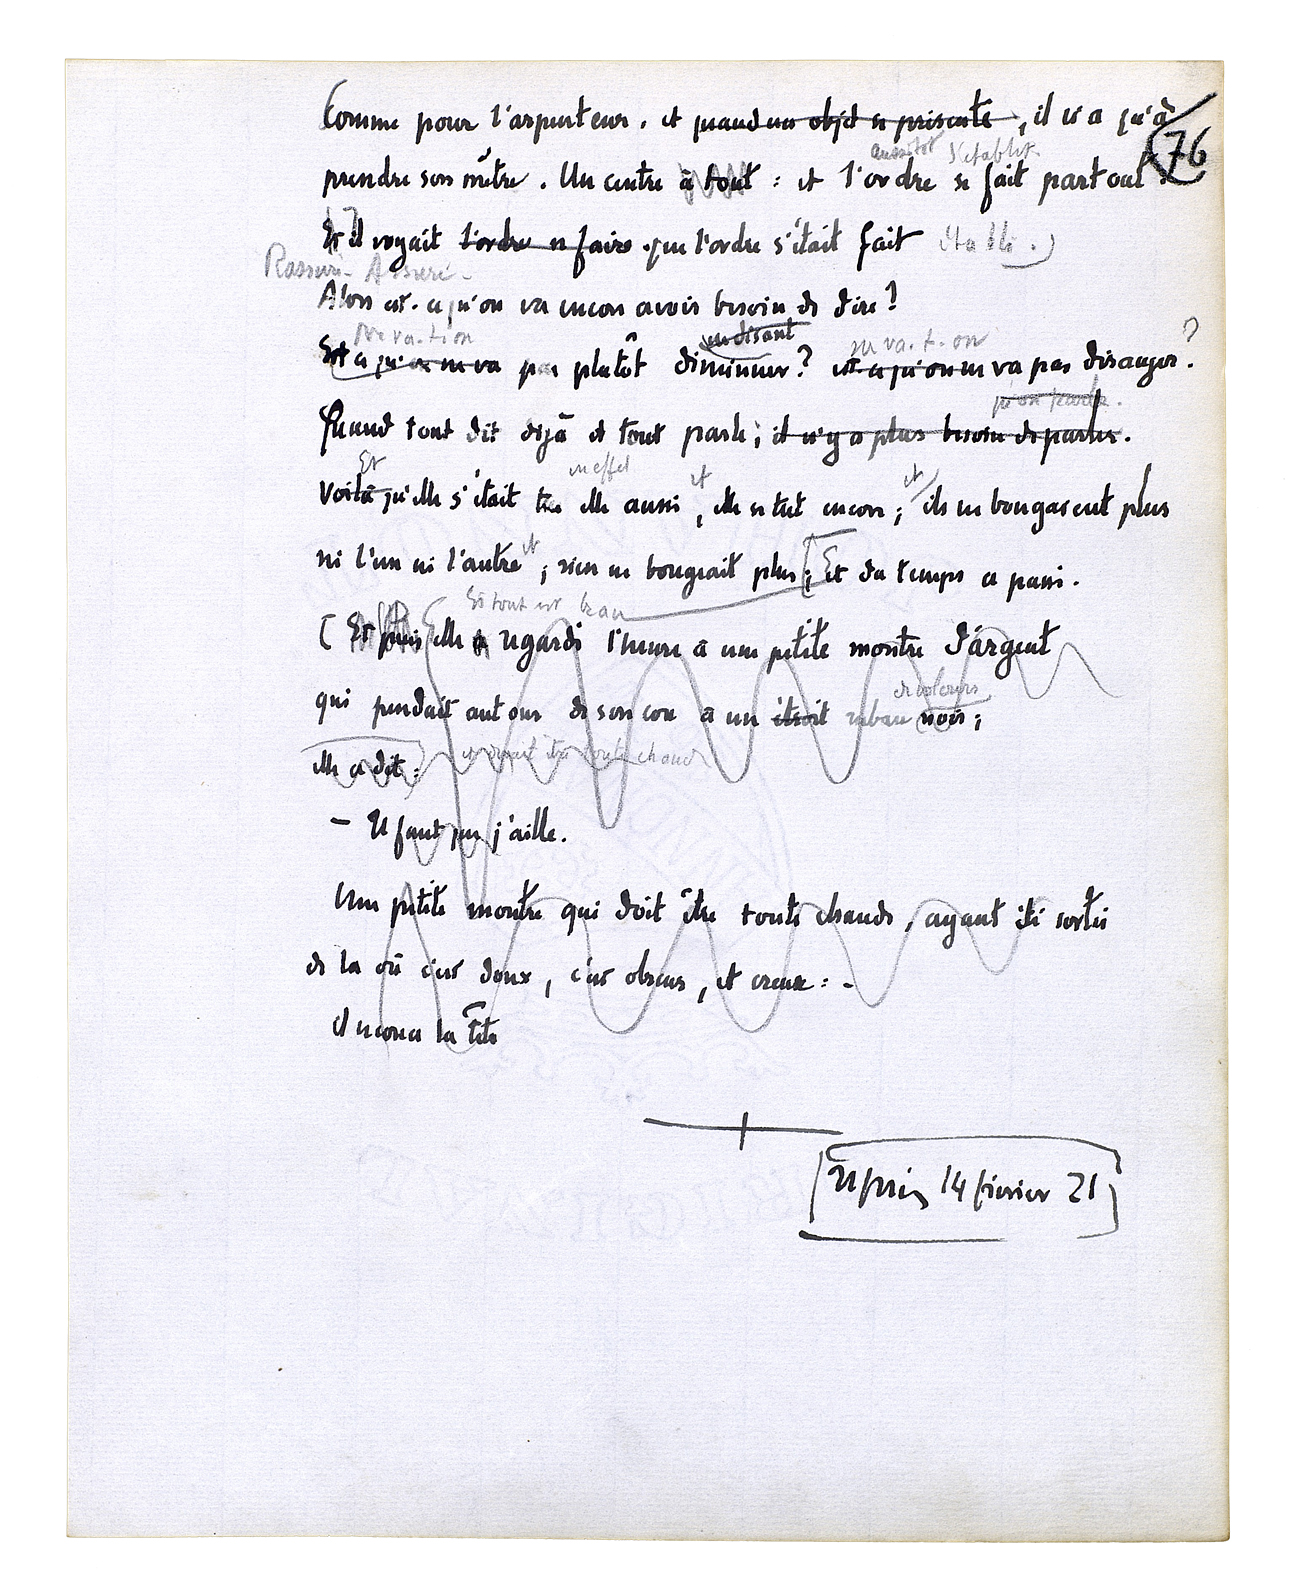 76
Comme pour l'arpenteur. et quand un objet se présente, il n'a qu'à
aussitôt s'établit
prendre son mètre. Un centre à tout : et l'ordre se fait partout.
Et il voyait l'ordre se faire. que l'ordre s'était fait établi.)
Rassuré - Assuré -
Alors est-ce qu'on va encore avoir besoin de dire ?
Ne va-t-on en disant ne va-t-on ?
Est-ce qu'on ne va pas plutôt diminuer ? est-ce qu'on ne va pas déranger.
qu'on parle.
Quand tout dit déjà et tout parle ; il n'y a plus besoin de parler.
Et en effet et et
Voilà qu'elle s'était tue elle aussi, elle se tut encore ; ils ne bougeaient plus
ni l'un ni l'autre et ; rien ne bougeait plus ; Et du temps a passé.
Et tout est beau
(Et puis elle a regardé l'heure à une petite montre d'argent
de velours
qui pendait autour de son cou à un étroit ruban noir ;
elle a dit : et devait être toute chaude
— Il faut que j'aille.
Une petite montre qui doit être toute chaude, ayant été sortie
de là où c'est doux, c'est obscur, et creux : -
il secoua la tête
Repris 14 février 21